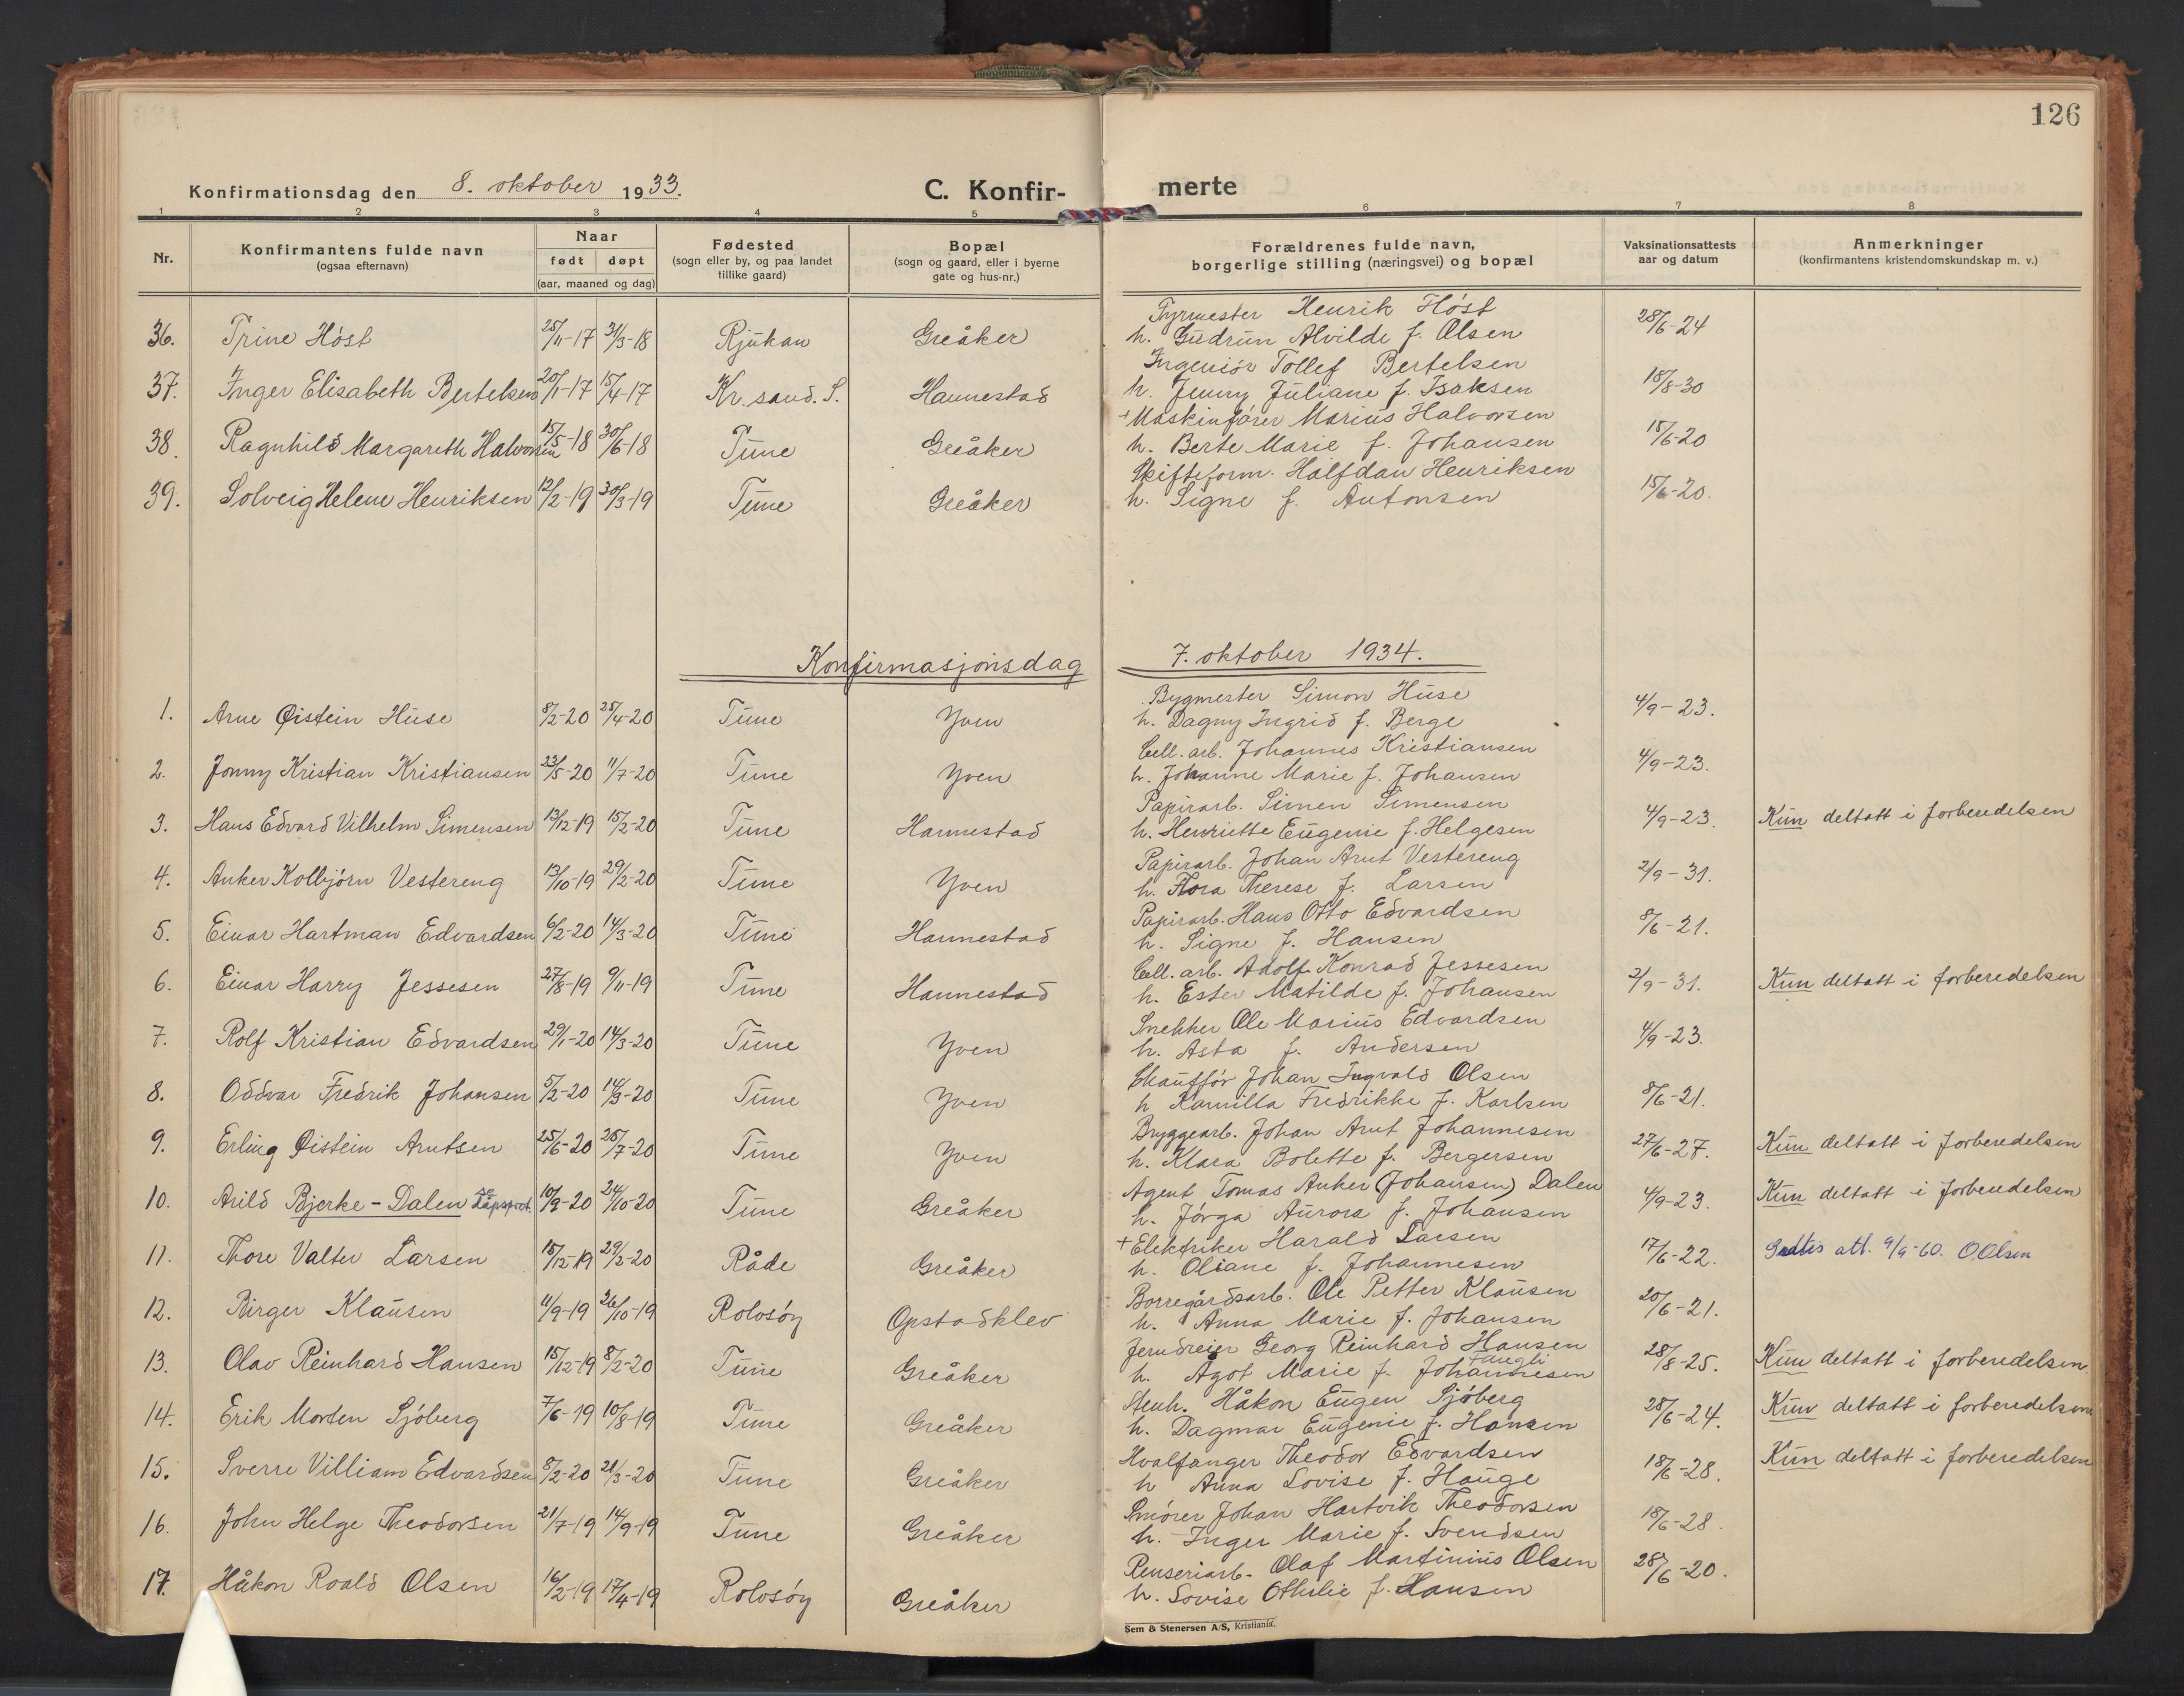 126
Konfirmationsdag den 8. oktober 1933.
C. Konfir-merte
1 2 3 4 5 6 7 8
Nr. | Konfirmantens fulde navn (ogsaa efternavn) | Naar født døpt (aar, maaned og dag) | Fødested (sogn eller by, og paa landet tillike gaard) | Bopæl (sogn og gaard, eller i byerne gate og hus-nr.) | Forældrenes fulde navn, borgerlige stilling (næringsvei) og bopæl | Vaksinationsattests aar og datum | Anmerkninger (konfirmantens kristendomskundskap m. v.)
36. Trine Høst 25/11-17 31/3-18 Rjukan Greåker Fyrmester Henrik Høst 28/6-24
h. Gudrun Alvilde f. Olsen
37. Inger Elisabeth Bertelsen 20/1-17 15/4-17 Kr.sand. S. Hannestad Ingeniør Tollef Bertelsen 18/8-30
h. Jenny Juliane f. Isaksen
38. Ragnhild Margareth Halvorsen 15/5-18 30/6-18 Tune Greåker +Maskinfører Marius Halvorsen 15/6-20
h. Berte Marie f. Johansen
39. Solveig Helene Henriksen 12/2-19 30/3-19 Tune Greåker Skifteform. Halfdan Henriksen 15/6-20.
h. Signe f. Antonsen
Konfirmasjonsdag 7. oktober 1934.
1. Arne Øistein Huse 8/2-20 25/4-20 Tune Yven Bygmester Simon Huse 4/9-23.
h. Dagny Ingrid f. Berge
2. Jonny Kristian Kristiansen 23/5-20 11/7-20 Tune Yven Cell. arb. Johannes Kristiansen 4/9-23.
h. Johanne Marie f. Johansen
3. Hans Edvard Vilhelm Simensen 13/12-19 15/2-20 Tune Hannestad Papirarb. Simen Simensen 4/9-23. Kun deltatt i forberedelsen
h. Henriette Eugenie f. Helgesen
4. Anker Kolbjørn Vestereng 13/10-19 29/2-20 Tune Yven Papirarb. Johan Arnt Vestereng 2/9-31.
h. Flora Therese f. Larsen
5. Einar Hartman Edvardsen 6/2-20 14/3-20 Tune Hannestad Papirarb. Hans Otto Edvardsen 8/6-21.
h. Signe f. Hansen
6. Einar Harry Jessesen 27/8-19 9/11-19 Tune Hannestad Cell. arb. Adolf Konrad Jessesen 2/9-31. Kun deltatt i forberedelsen
h. Ester Matilde f. Johansen
7. Rolf Kristian Edvardsen 29/1-20 14/3-20 Tune Yven Snekker Ole Marius Edvardsen 4/9-23.
h. Asta f. Andersen
8. Oddvar Fredrik Johansen 5/2-20 14/3-20 Tune Yven Chauffør Johan Ingvald Olsen 8/6-21.
h Kamilla Fredrikke f. Karlsen
9. Erling Øistein Arntsen 25/6-20 25/7-20 Tune Yven Bryggearb. Johan Arnt Johannesen 27/6-27. Kun deltatt i forberedelsen
h. Klara Bolette f. Bergersen
10. Arild Bjerke-Dalen se dåpsprot. 10/9-20 24/10-20 Tune Greåker Agent Tomas Anker (Johansen) Dalen 4/9-23. Kun deltatt i forberedelsen
h. Jørga Aurora f. Johansen
11. Thore Valter Larsen 15/12-19 29/2-20 Råde Greåker +Elektriker Harald Larsen 17/6-22. Gratis att. 9/9-60. O.Olsen
h. Oliane f. Johannesen
12. Birger Klausen 11/9-19 26/10-19 Rolvsøy Opstadklev Borregårdsarb. Ole Petter Klausen 20/6-21.
h. Anna Marie f. Johansen
13. Olav Reinhard Hansen 15/12-19 8/2-20 Tune Greåker Jerndreier Georg Reinhard Hansen 28/8-25. Kun deltatt i forberedelsen.
h. Agot Marie f. Johannesen
14. Erik Morten Sjøberg 7/6-19 10/8-19 Tune Greåker Stenh. Håkon Eugen Sjøberg 28/6-24. Kun deltatt i forberedelsen
h. Dagmar Eugenie f. Hansen
15. Sverre Villiam Edvardsen 8/2-20 21/3-20 Tune Greåker Hvalfanger Theodor Edvardsen 18/6-28. Kun deltatt i forberedelsen
h Anna Lovise f. Hauge
16. John Helge Theodorsen 21/7-19 14/9-19 Tune Greåker Smører Johan Hartvik Theodorsen 18/6-28.
h. Inger Marie f. Svendsen
17. Håkon Roald Olsen 16/2-19 17/4-19 Rolvsøy Greåker Renseriarb. Olaf Martinius Olsen 28/6-20.
h. Lovise Othilie f. Hansen
Sem & Stenersen A/S, Kristiania.